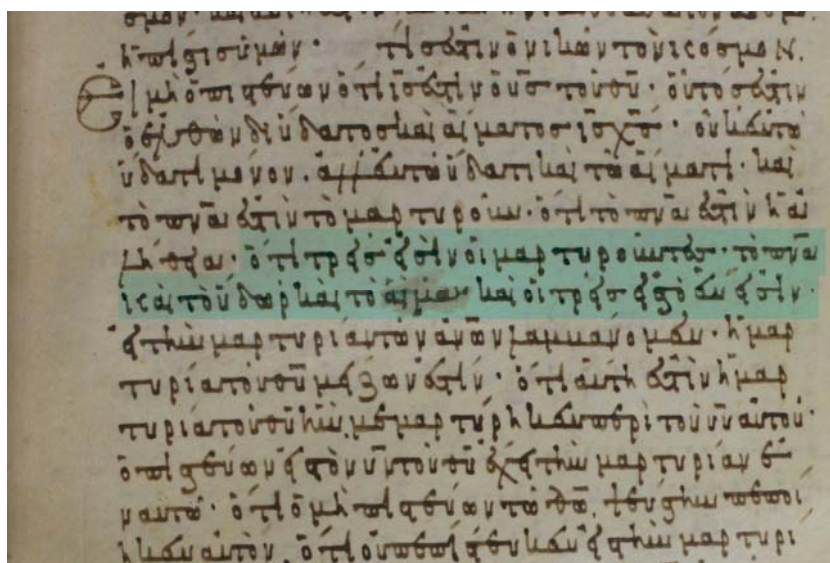 ἡ πίστις ὑμῶν· τίς ἐστιν ὁ νικῶν τὸν κόσμον.
Εἰ μὴ ὁ πιστεύων ὅτι ι̅ς̅ ἐστὶν ὁ υ̅ς̅ τοῦ θ̅υ̅· οὗτός ἐστιν
ὁ ἐλθὼν δι ὕδατος καὶ αἵματος ι̅ς̅ χ̅ς̅· οὐκ ἐν τῶ
ὕδατι μόνον. ἀλλ ἐν τῶ ὕδατι καὶ τῶ αἵματι· καὶ
τὸ π̅ν̅α̅ ἐστὶν τὸ μαρτυροῦν· ὅτι τὸ π̅ν̅α̅ ἐστὶν ἡ ἀ
λήθεια· ὅτι τρεῖς εἰσὶν οἱ μαρτυροῦντες· τὸ π̅ν̅α̅
καὶ τὸ ὕδωρ καὶ τὸ αἷμα· καὶ οἱ τρεῖς εἰς τὸ ἕν εἰσιν·
εἰ τὴν μαρτυρίαν τῶν α̅ν̅ω̅ν̅ λαμβάνομεν· ἡ μαρ
τυρία τοῦ θ̅υ̅ μείζων ἐστίν· ὅτι αὕτη ἐστὶν ἡ μαρ
τυρία τοῦ θ̅υ̅ ἣν μεμαρτύρηκεν περὶ τοῦ υ̅υ̅ αὐτοῦ·
ὁ πιστεύων εἰς τὸν υ̅ν̅ τοῦ θ̅υ̅ ἔχει τὴν μαρτυρίαν ἐ
ν αὐτῶ· ὅτι ὁ μὴ πιστεύων τῶ θ̅ω̅, ψεύστην πεποί
ηκεν αὐτόν, ὅτι οὐ πεπίστευκεν εἰς τὴν μαρτυρί